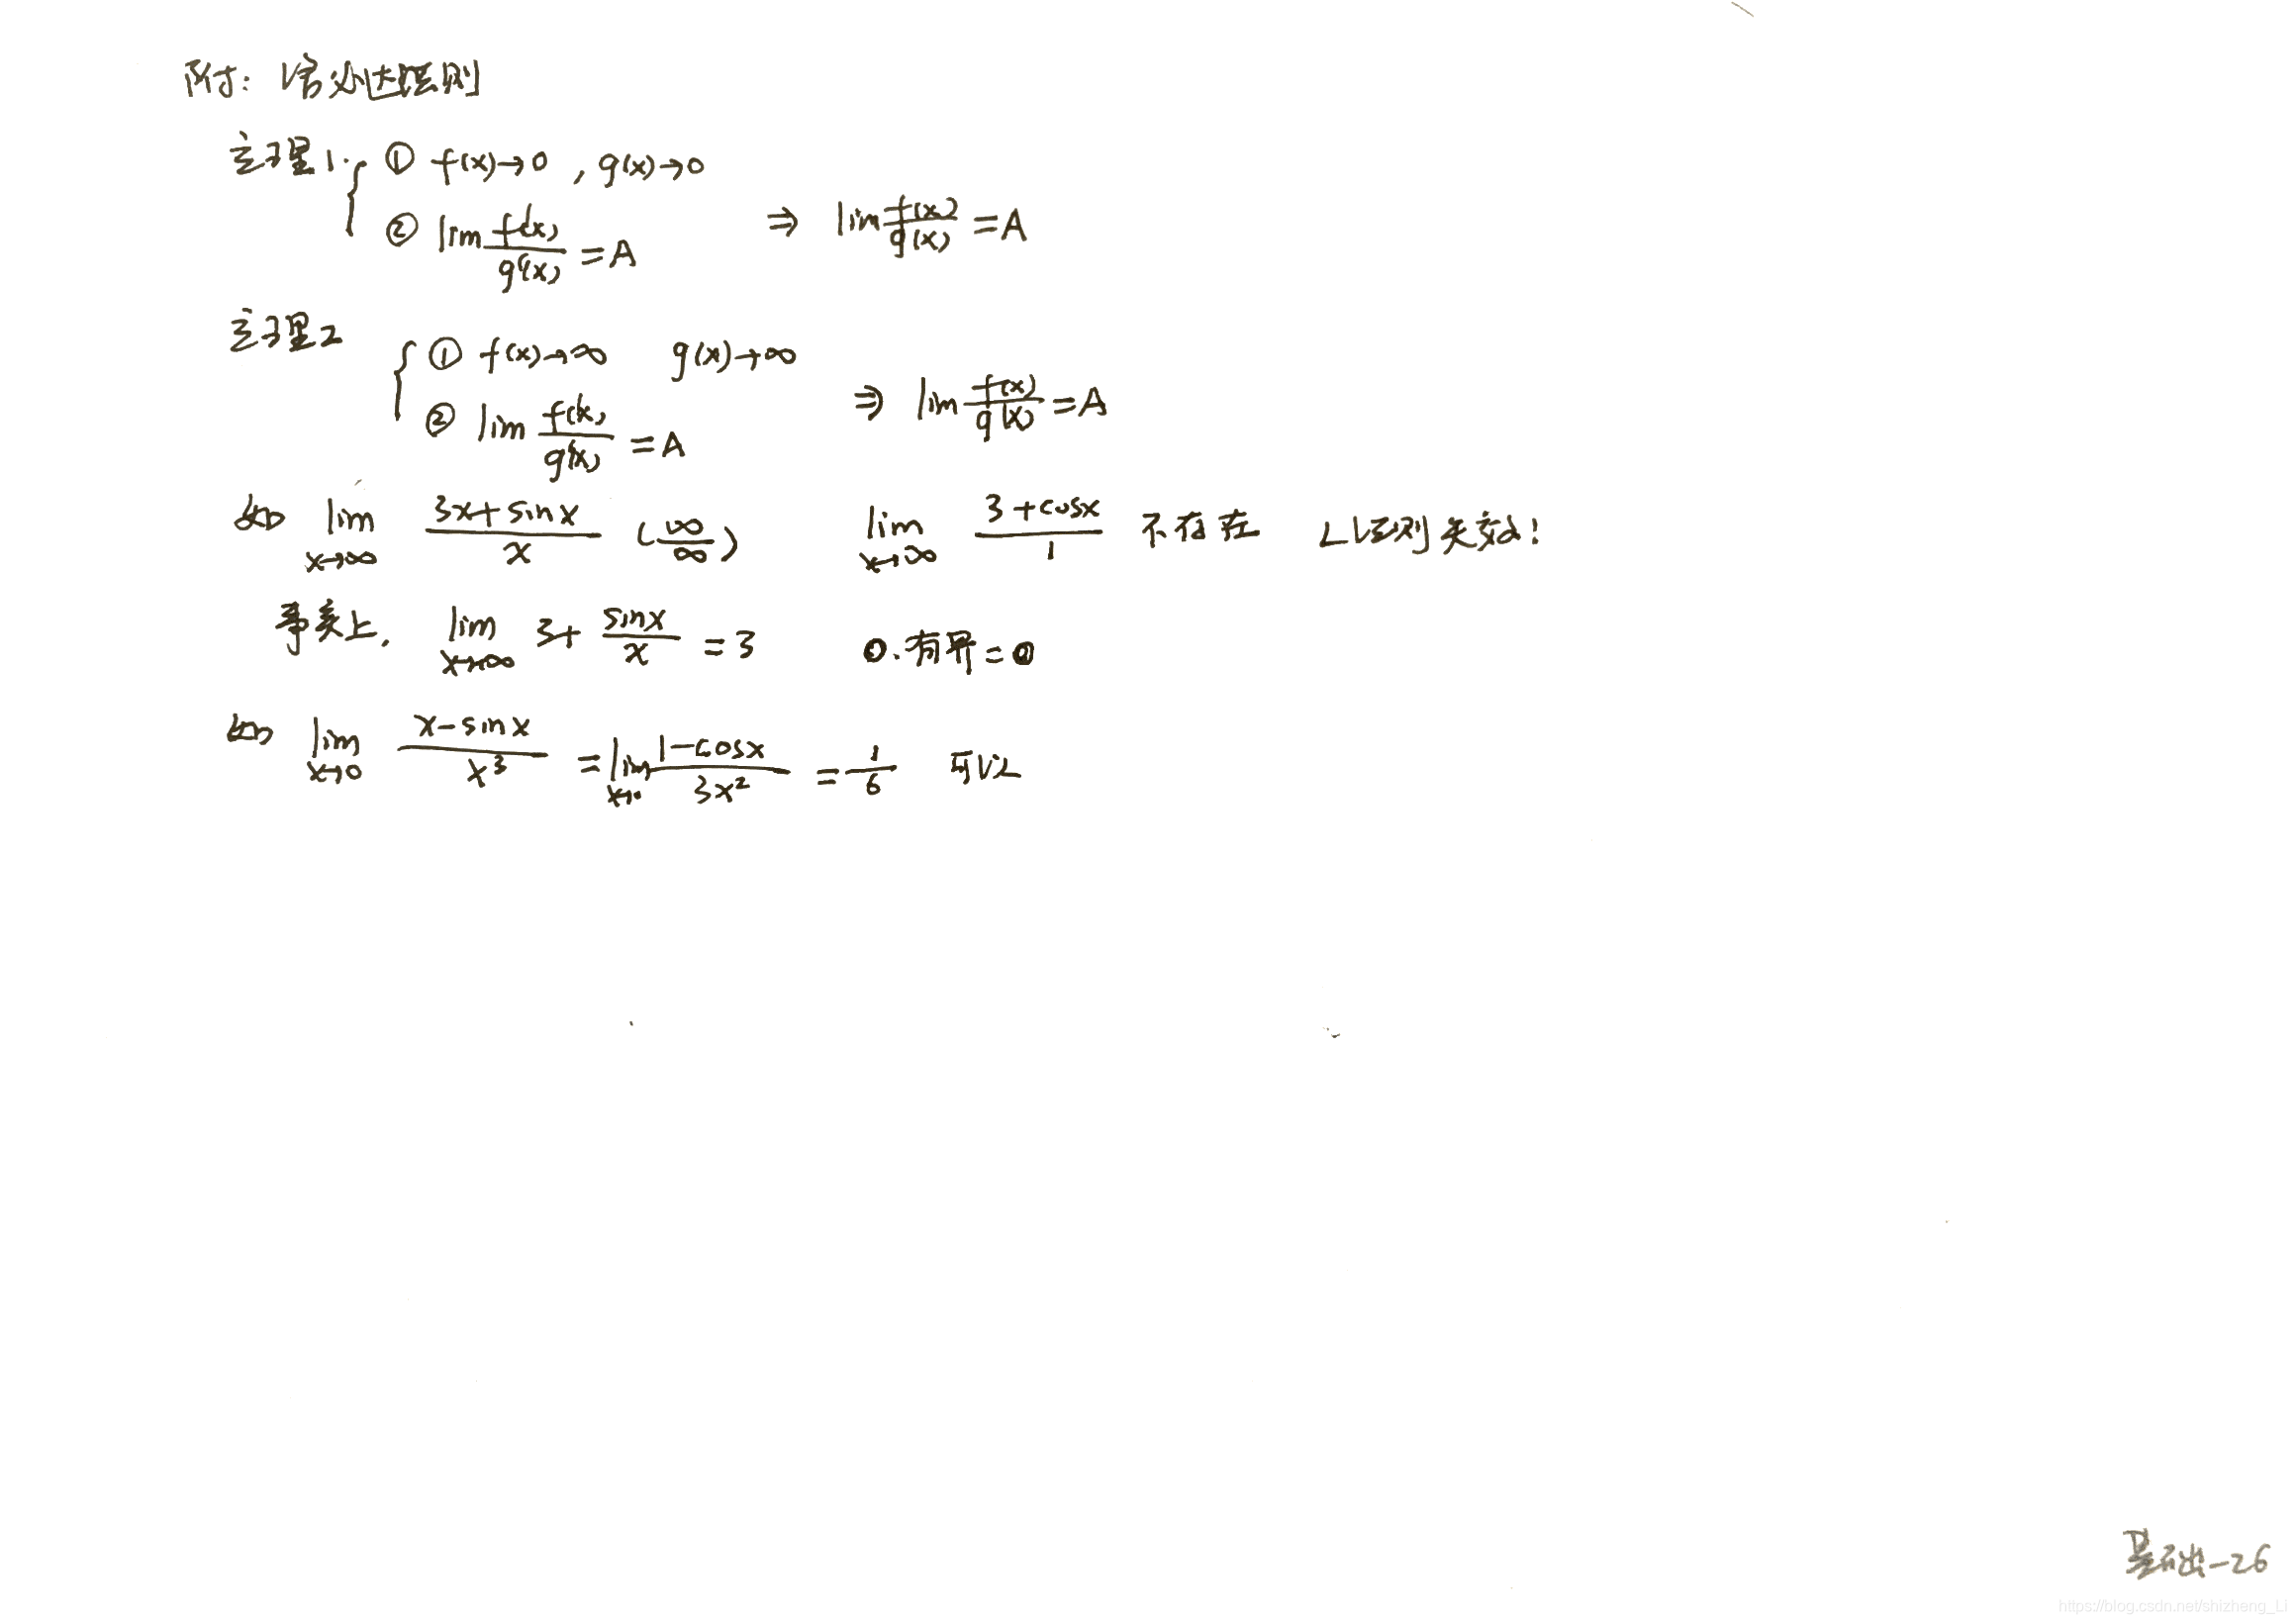 附: 洛必达法则
定理1. ① f(x)→0 , g(x)→0
② lim f'(x)/g'(x) = A ⇒ lim f(x)/g(x) = A
定理2 ① f(x)→∞ g(x)→∞
② lim f'(x)/g'(x) = A ⇒ lim f(x)/g(x) = A
如 lim x→∞ (3x+sinx)/x (∞/∞) lim x→∞ (3+cosx)/1 不存在 L法则失效!
事实上, lim x→∞ 3+ sinx/x = 3 0·有界=0
如 lim x→0 (x-sinx)/x³ = lim x→0 (1-cosx)/3x² = 1/6 可以
基础-26
https://blog.csdn.net/shizheng_Li